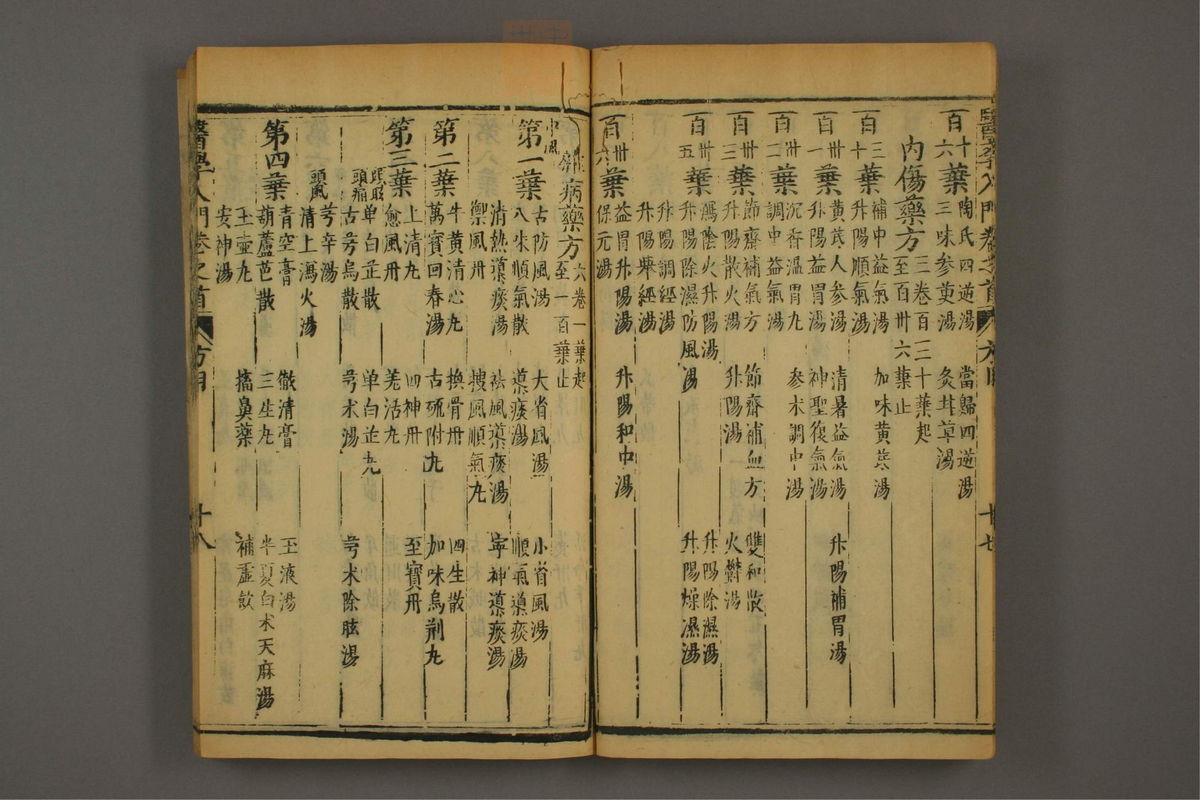 醫學入門卷之首 方目 十七
百十六葉 陶氏四逆湯 當歸四逆湯
三味參萸湯 灸甘草湯
內傷藥方 三卷百三十葉起至百卅六葉止
百三十葉 補中益氣湯 加味黃芪湯
升陽順氣湯
百卅一葉 黃芪人參湯 清暑益氣湯 升陽補胃湯
升陽益胃湯 神聖復氣湯
百卅二葉 沉香溫胃丸 參朮調中湯
調中益氣湯
百卅三葉 節齋補氣方 節齋補血方 雙和散
升陽散火湯 升陽湯 火鬱湯
百卅五葉 瀉陰火升陽湯 升陽除濕湯
升陽除濕防風湯 升陽燥濕湯
升陽調經湯
升陽舉經湯
百卅六葉 益胃升陽湯 升陽和中湯
保元湯
雜病藥方 六卷一葉起至一百葉止
中風
第一葉 古防風湯 大省風湯 小省風湯
八味順氣散 導痰湯 順氣導痰湯
清熱導痰湯 祛風導痰湯 寧神導痰湯
禦風丹 搜風順氣丸
第二葉 牛黃清心丸 換骨丹 四生散
萬寶回春湯 古硫附丸 加味烏荆丸
第三葉 上清丸 四神丹 至寶丹
愈風丹 羌活丸
頭眩 頭痛 單白芷散 單白芷丸
古芎烏散 芎朮湯 芎朮除眩湯
頭風 芎辛湯
清上瀉火湯
第四葉 青空膏 徹清膏 玉液湯
葫蘆芭散 三生丸 半夏白朮天麻湯
玉壺丸 搐鼻藥 補虛飲
安神湯
醫學入門卷之首 方目 十八